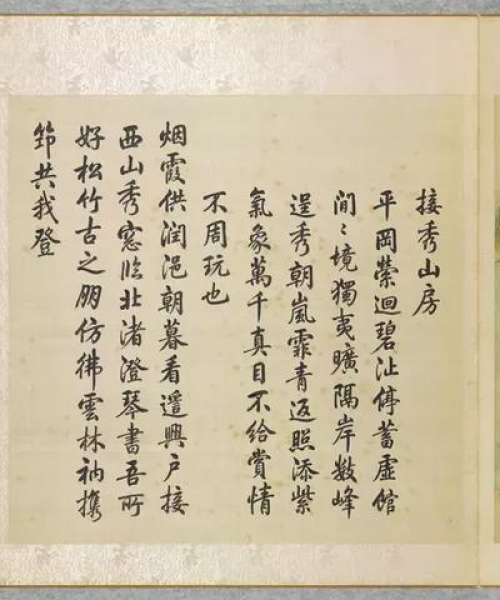 接秀山房
平岡縈迴碧沚停蓄虛館
間〻境獨夷曠隔岸數峰
逞秀朝嵐霏青返照添紫
氣象萬千真目不給賞情
不周玩也
烟霞供潤浥朝暮看遥興户接
西山秀窓臨北渚澄琴書吾所
好松竹古之朋仿彿雲林衲攜
筇共我登